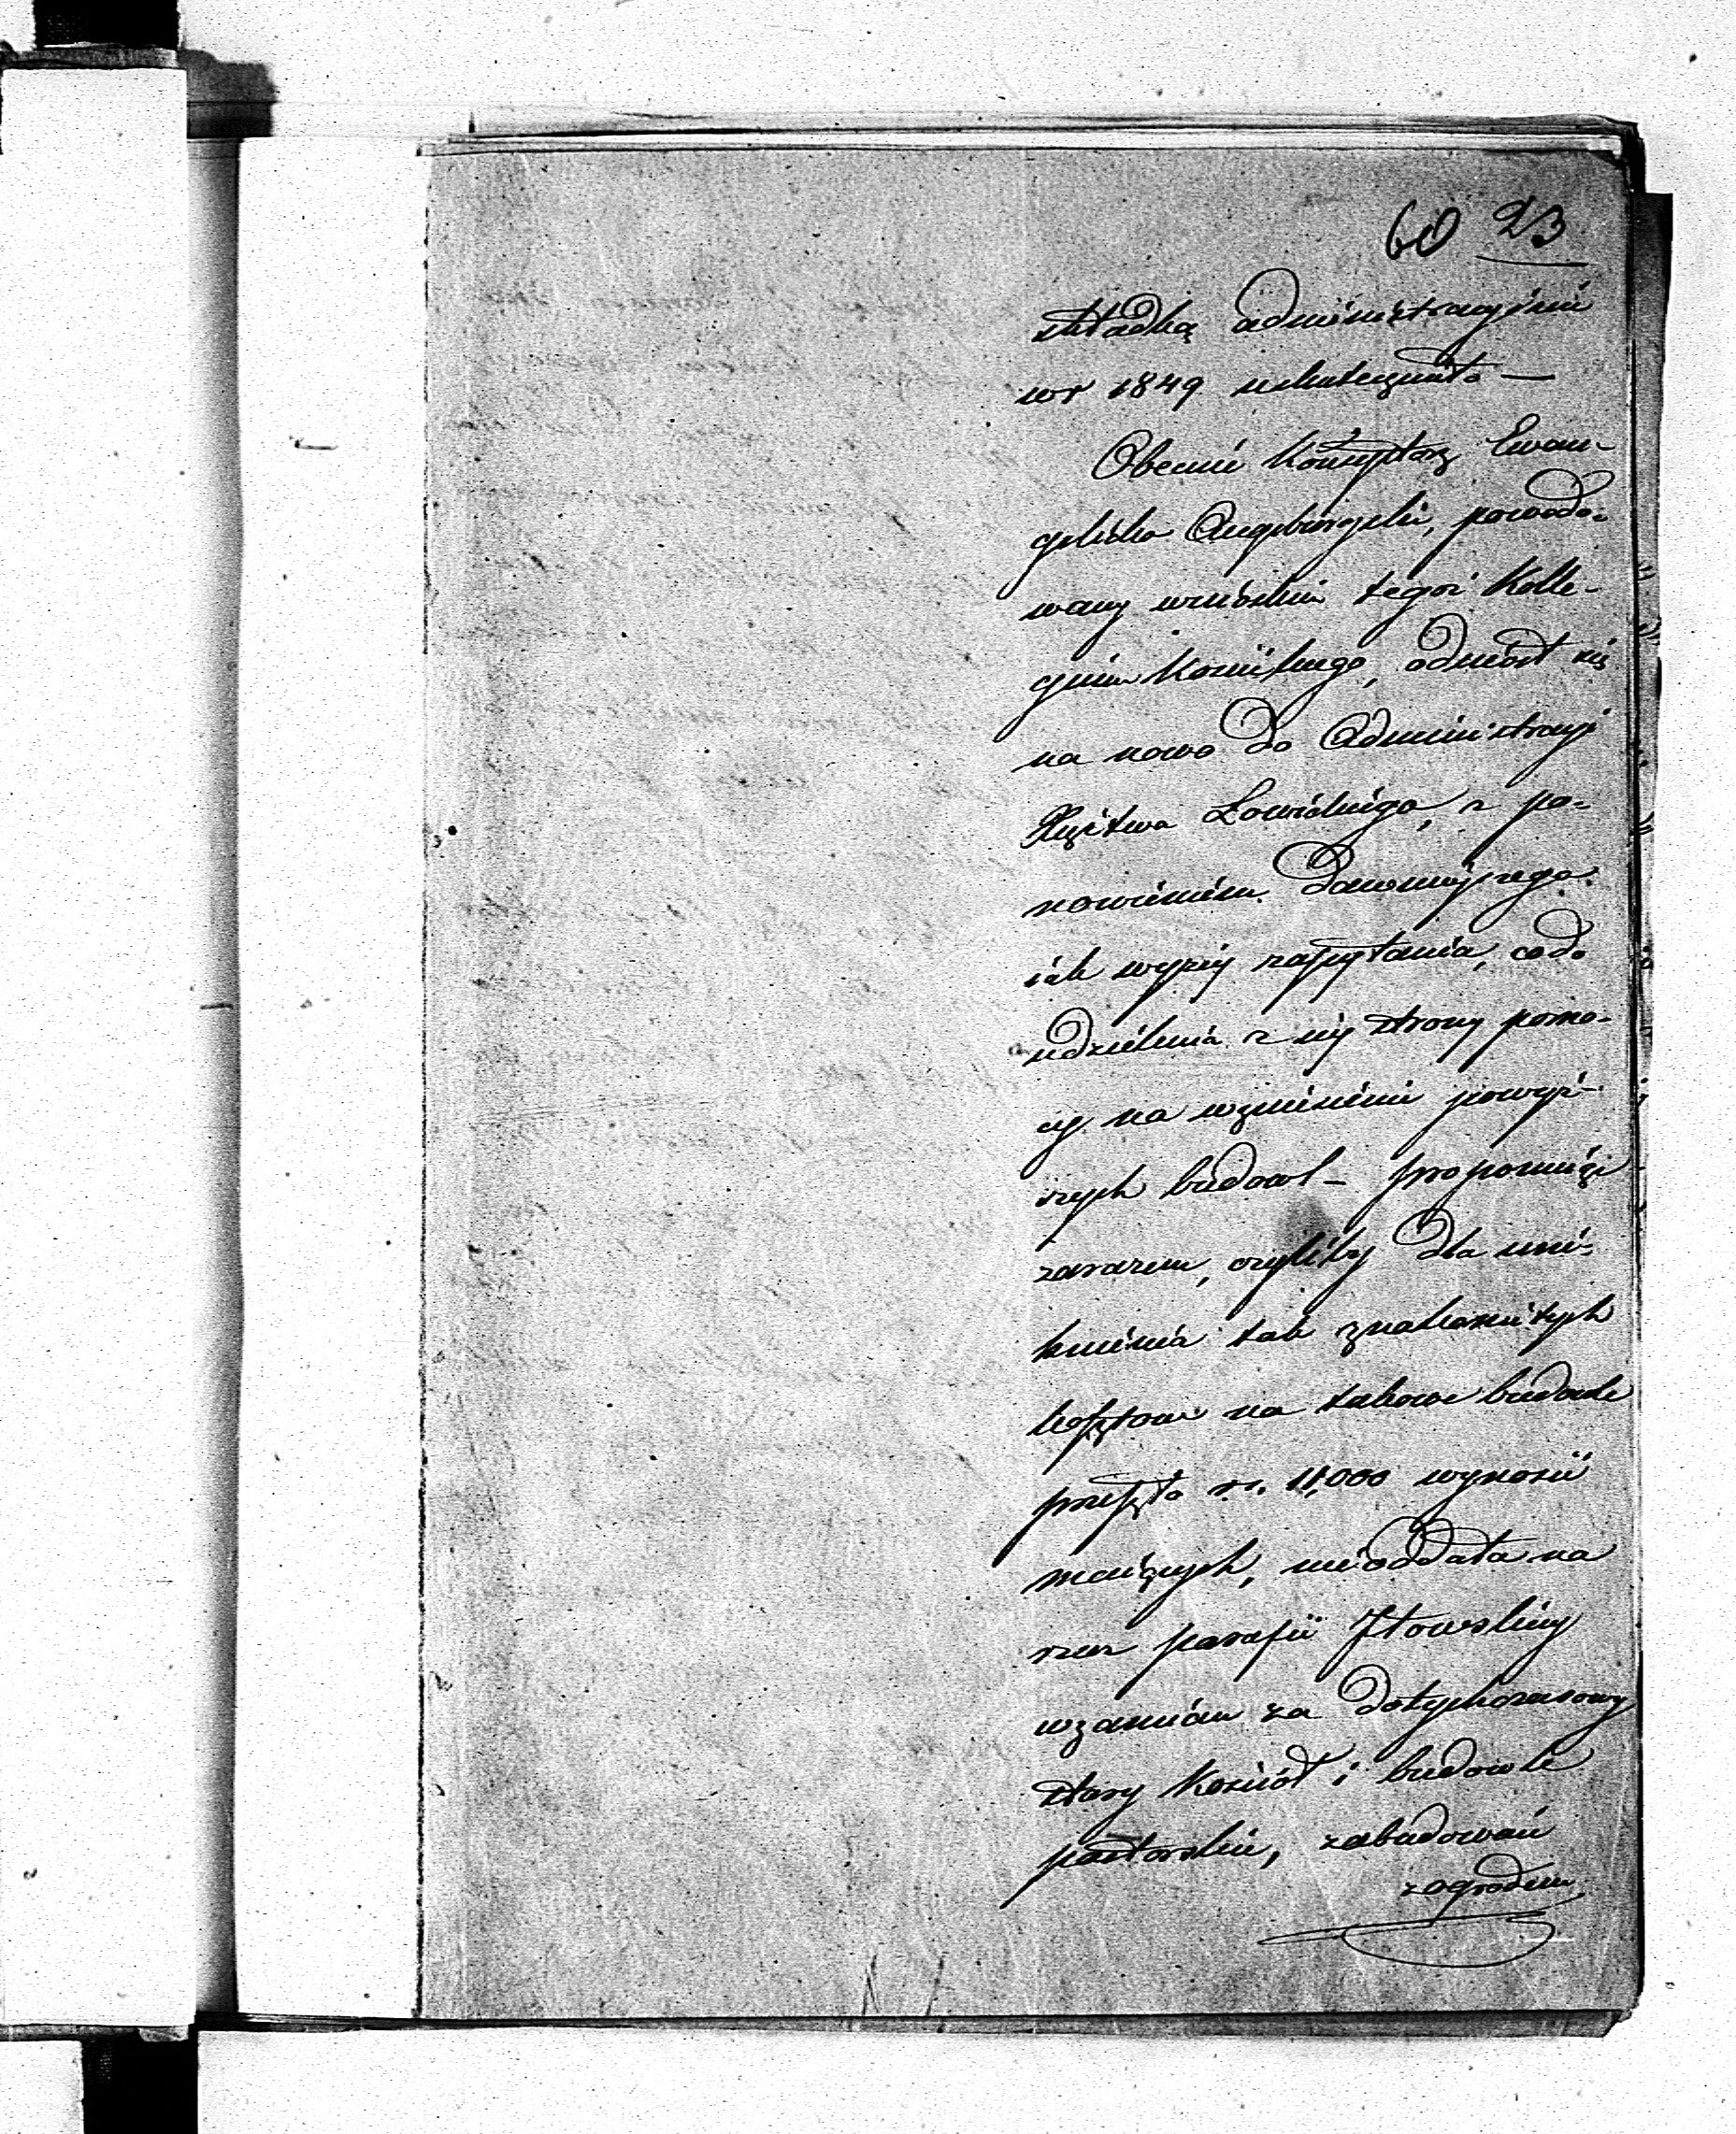 60 23
składką administracyjnie
w r 1849 uskuteczniła —
Obecnie Konsystorz Ewan-
gelicko Augsburgski, powodo-
wany wnioskiem tegoż Kolle-
gium Kościelnego, odniósł się
na nowo do Administracyi
Księstwa Łowickiego, z po-
nowieniem dawniejszego
iak wyżej zapytania, co do
udzielenia z iej strony pomo-
cy na wzniesienie powyż-
szych budowl – proponuiąc
zarazem, czyliby dla uni-
knienia tak znakomitych
kosztow na takowe budowle
przeszło rs. 11,000 wynosić
maiących, nie oddała na
rzecz parafii Iłowskiey
w zamian za dotychczasowy
stary Kościół i budowle
pastorskie, zabudowań
z ogrodem